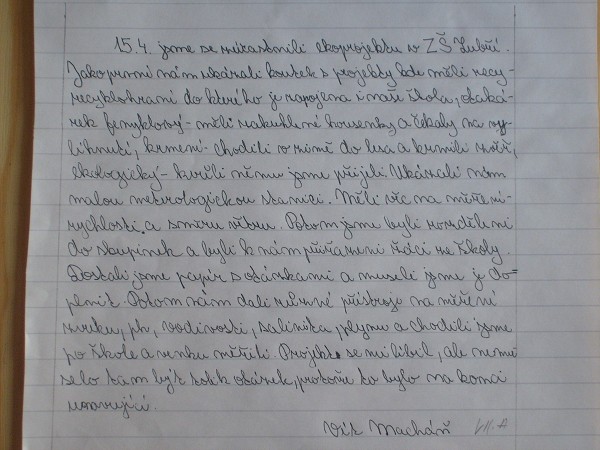 15.4. jsme se zúčastnili ekoprojektu v ZŠ Zubří.
Jako první nám ukázali koutek s projekty kde měli recy-
recyklohraní do kterého je zapojena i naše škola, otaká-
rek fenyklový - měli zakuklené housenky a čekaly na vy-
líhnutí, krmení - chodili v zimě do lesa a krmili zvěř,
ekologický - kvůli němu jsme přijeli. Ukázali nám
malou meterologickou stanici. Měli věc na měření
rychlosti a směru větru. Potom jsme byli rozděleni
do skupinek a byli k nám přiřazeni žáci ze školy.
Dostali jsme papír s otázkami a museli jsme je do=
plnit. Potom nám dali různé přístroje na měření
zvuku, ph, vodivosti, salinita, plynu a chodili jsme
po škole a venku měřili. Projekt se mi líbil, ale nemu
selo tam být tolik otázek, protože to bylo na konci
unavující.
Vít Macháň VII.A